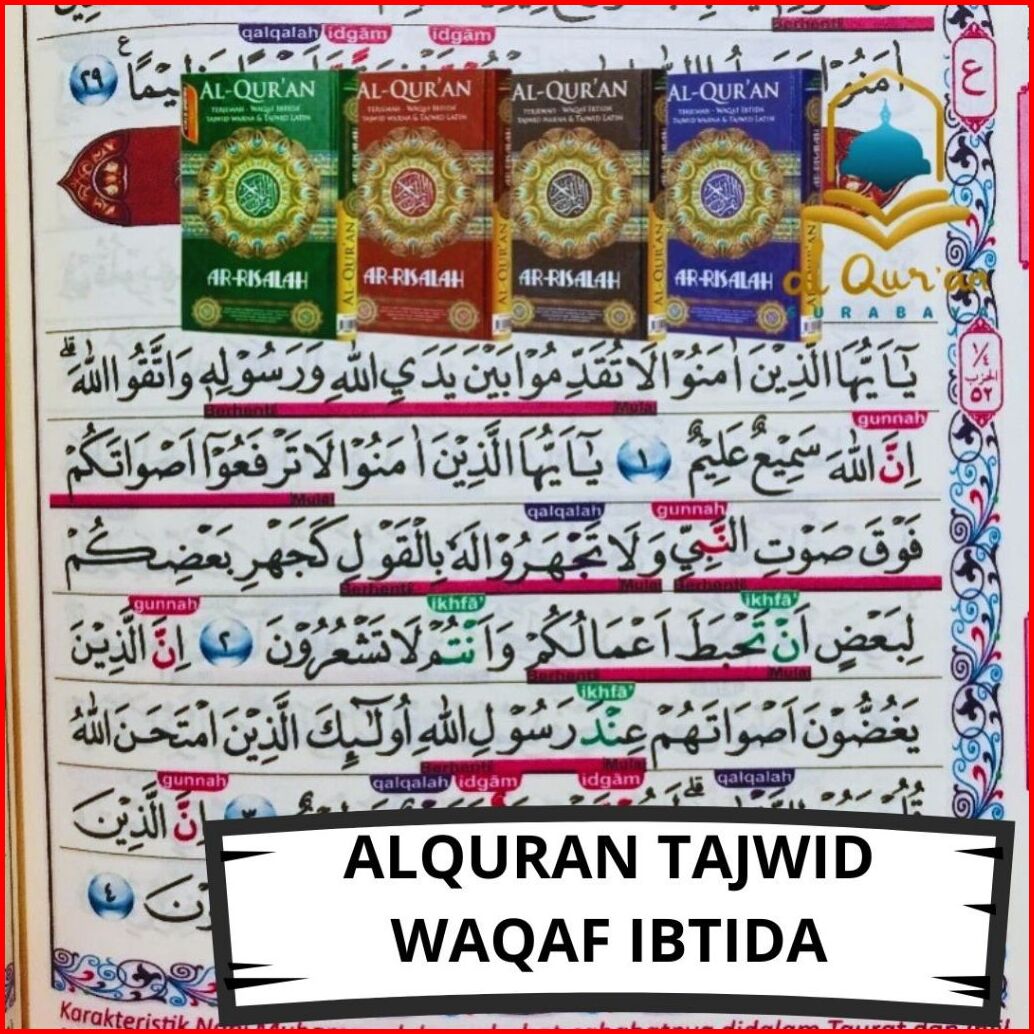 Berhenti
qalqalah idgām idgām
٢٩
ع
AL-QUR'AN
TERJEMAH - WAQAF IBTIDA
TAJWID WARNA & TAJWID LATIN
AR-RISALAH
AL-QUR'AN
AL-QUR'AN
TERJEMAH - WAQAF IBTIDA
TAJWID WARNA & TAJWID LATIN
AR-RISALAH
AL-QUR'AN
AL-QUR'AN
TERJEMAH - WAQAF IBTIDA
TAJWID WARNA & TAJWID LATIN
AR-RISALAH
AL-QUR'AN
AL-QUR'AN
TERJEMAH - WAQAF IBTIDA
TAJWID WARNA & TAJWID LATIN
AR-RISALAH
al Qur'an
SURABAYA
١/٤
الحزب
٥٢
يٰٓاَيُّهَا الَّذِيْنَ اٰمَنُوْا لَا تُقَدِّمُوْا بَيْنَ يَدَيِ اللّٰهِ وَرَسُوْلِهٖ وَاتَّقُوا اللّٰهَ ۗ
Berhenti Mulai
gunnah
اِنَّ اللّٰهَ سَمِيْعٌ عَلِيْمٌ ١ يٰٓاَيُّهَا الَّذِيْنَ اٰمَنُوْا لَا تَرْفَعُوْٓا اَصْوَاتَكُمْ
Mulai
qalqalah gunnah
فَوْقَ صَوْتِ النَّبِيِّ وَلَا تَجْهَرُوْا لَهٗ بِالْقَوْلِ كَجَهْرِ بَعْضِكُمْ
Berhenti Mulai Berhenti
gunnah ikhfā' ikhfā'
لِبَعْضٍ اَنْ تَحْبَطَ اَعْمَالُكُمْ وَاَنْتُمْ لَا تَشْعُرُوْنَ ٢ اِنَّ الَّذِيْنَ
Berhenti Mulai
ikhfā'
يَغُضُّوْنَ اَصْوَاتَهُمْ عِنْدَ رَسُوْلِ اللّٰهِ اُولٰۤىِٕكَ الَّذِيْنَ امْتَحَنَ اللّٰهُ
Berhenti Mulai
gunnah qalqalah idgām idgām qalqalah
اِنَّ الَّذِيْنَ
٤
ALQURAN TAJWID
WAQAF IBTIDA